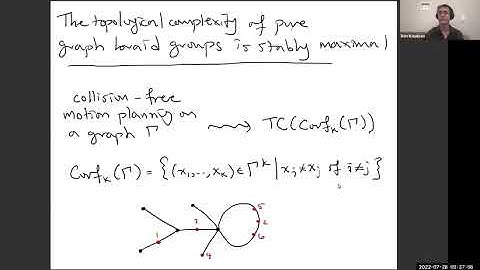 The topological complexity of pure
graph braid groups is stably maximal
collision-free
motion planning on
a graph Γ
⇝ TC(Conf_k(Γ))
Conf_k(Γ) = {(x_1,..,x_k) ∈ Γ^k | x_i ≠ x_j if i≠j}
5
3
2
1
6
4
Ben Knudsen